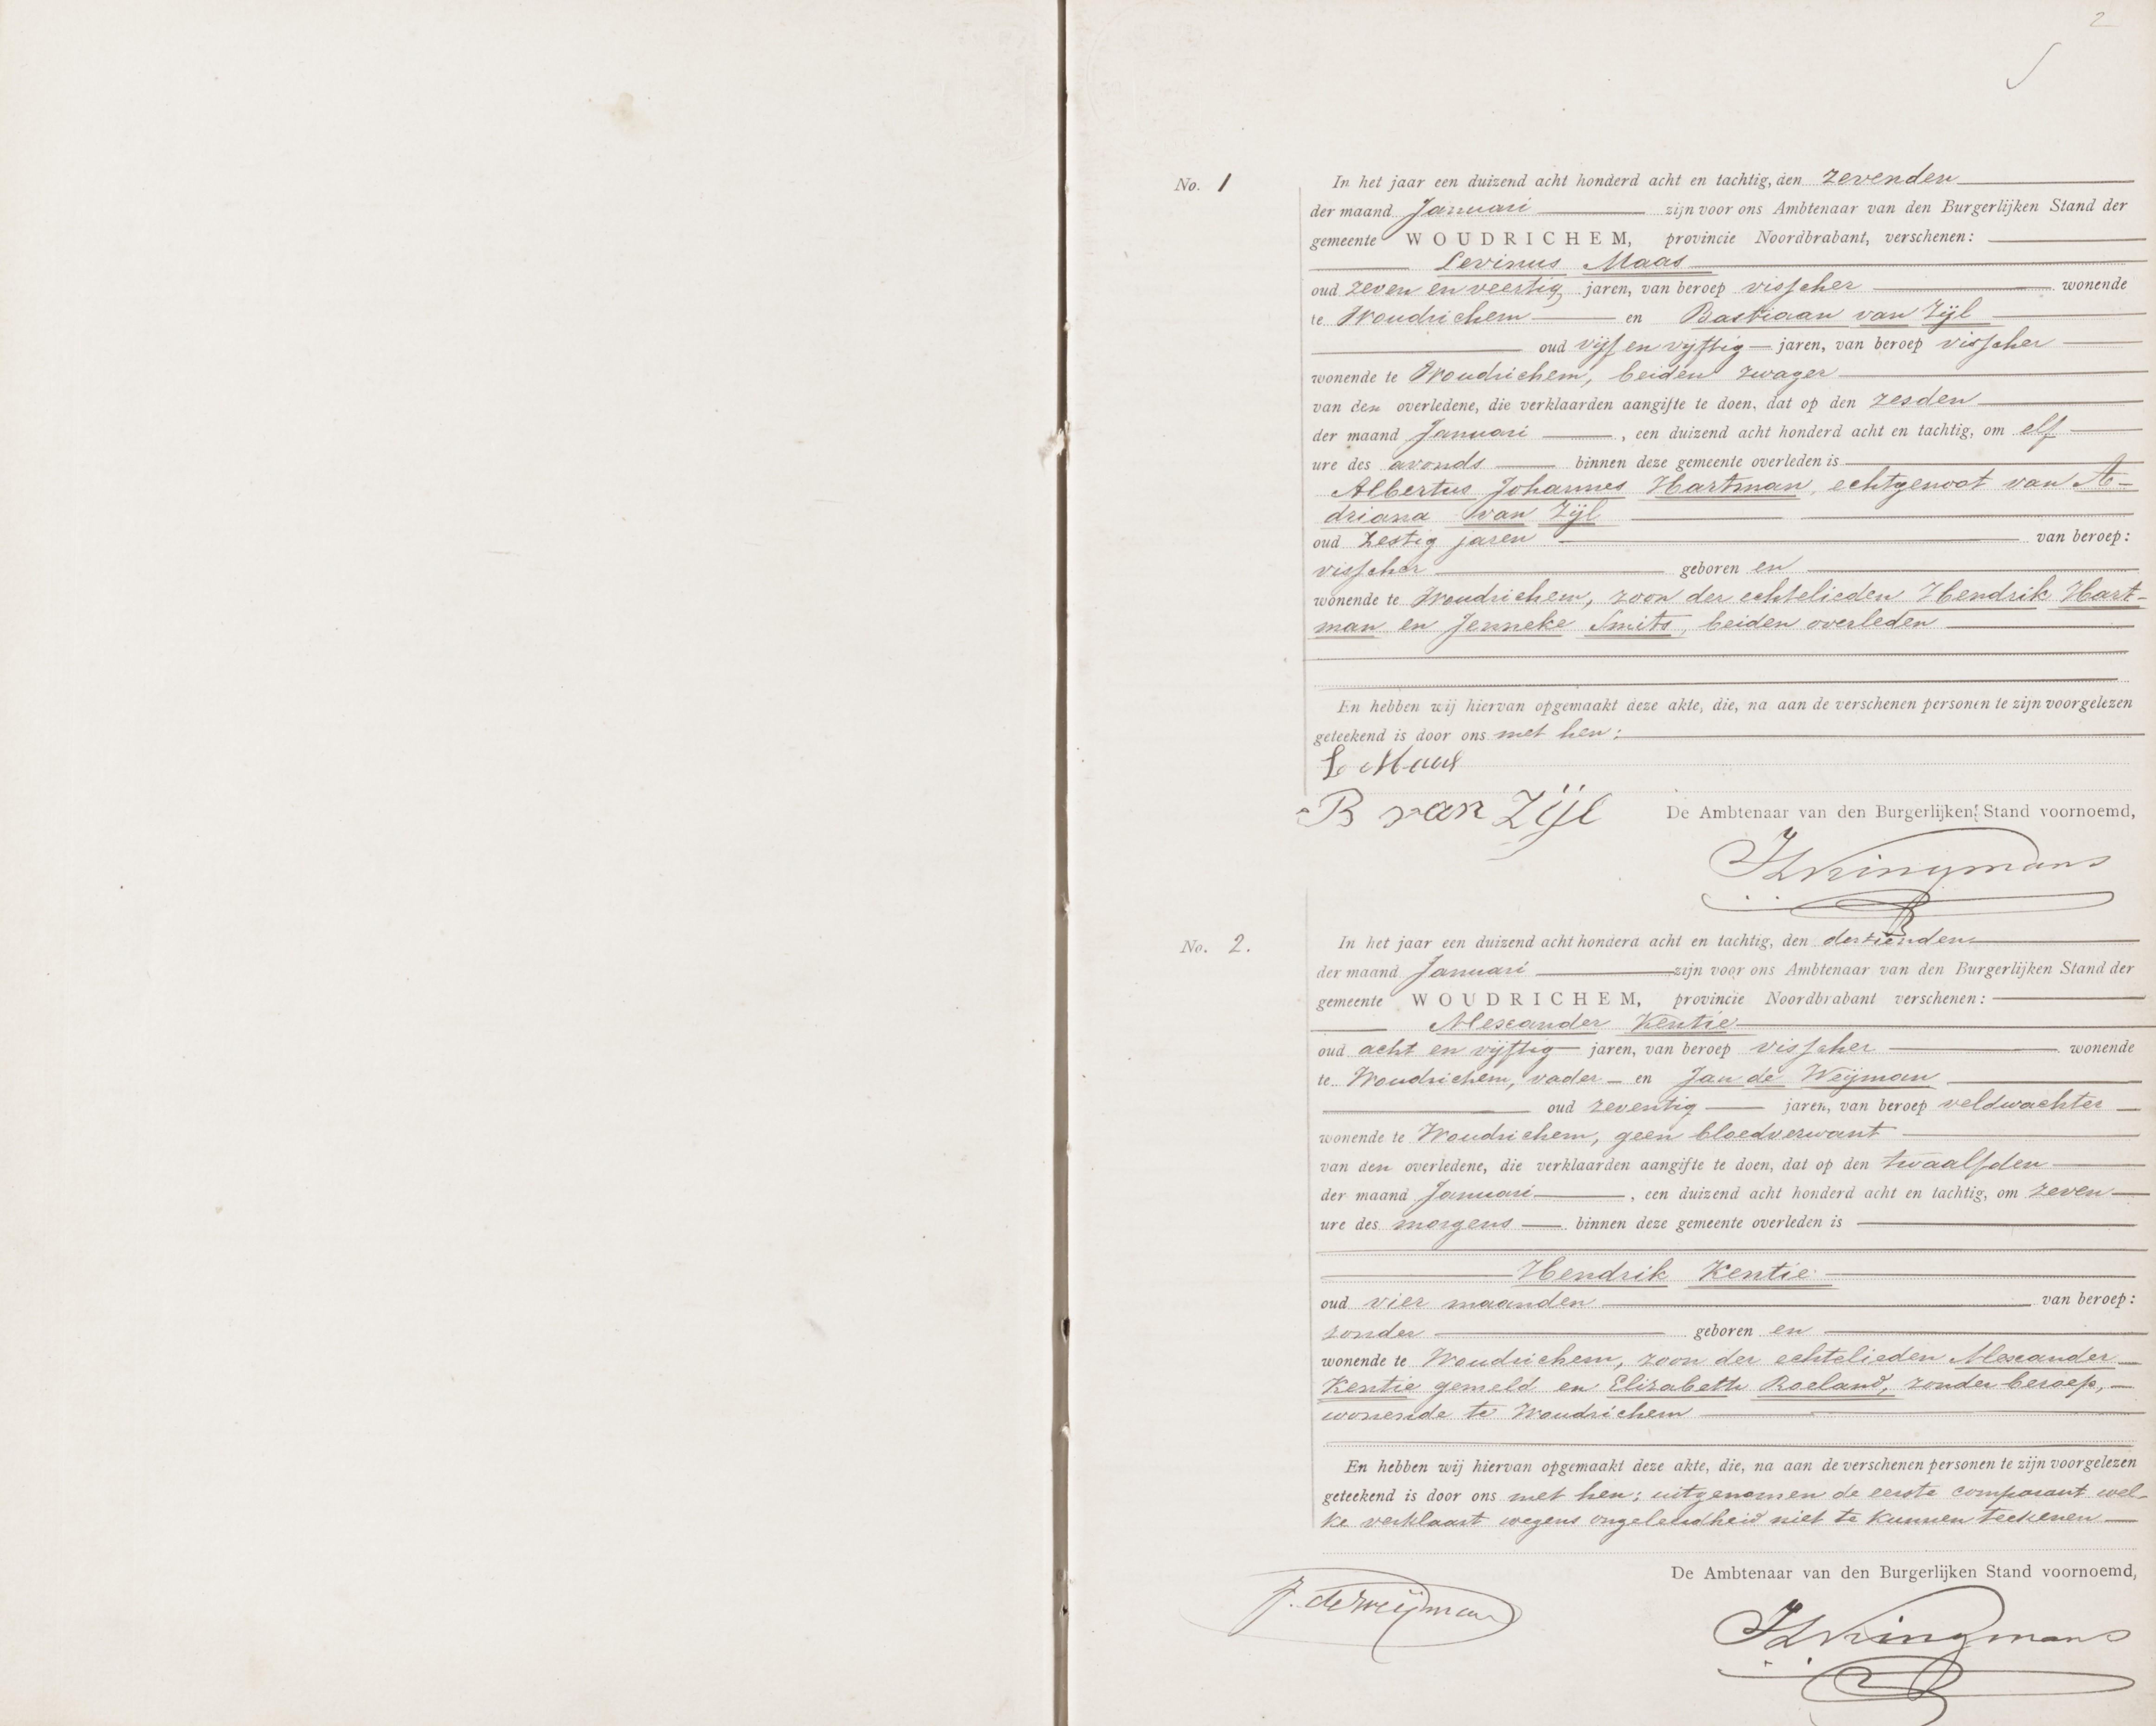 2
No. 1
In het jaar een duizend acht honderd acht en tachtig, den zevenden
der maand Januari zijn voor ons Ambtenaar van den Burgerlijken Stand der
gemeente WOUDRICHEM, provincie Noordbrabant, verschenen:
Levinus Maas
oud zeven en veertig jaren, van beroep visscher wonende
te Woudrichem en Bastiaan van Zijl
oud vijf en vijftig jaren, van beroep visscher
wonende te Woudrichem, beiden zwager
van den overledene, die verklaarden aangifte te doen, dat op den zesden
der maand Januari, een duizend acht honderd acht en tachtig, om elf
ure des avonds binnen deze gemeente overleden is
Albertus Johannes Hartman, echtgenoot van A-
driana van Zijl
oud zestig jaren van beroep:
visscher geboren en
wonende te Woudrichem, zoon der echtelieden Hendrik Hart-
man en Jenneke Smits, beiden overleden
En hebben wij hiervan opgemaakt deze akte, die, na aan de verschenen personen te zijn voorgelezen
geteekend is door ons met hen:
L Maas
B van Zijl
De Ambtenaar van den Burgerlijken Stand voornoemd,
No. 2.
In het jaar een duizend acht honderd acht en tachtig, den dertienden
der maand Januari zijn voor ons Ambtenaar van den Burgerlijken Stand der
gemeente WOUDRICHEM, provincie Noordbrabant verschenen:
Alexander Kentie
oud acht en vijftig jaren, van beroep visscher wonende
te Woudrichem, vader en Jan de Weijman
oud zeventig jaren, van beroep veldwachter
wonende te Woudrichem, geen bloedverwant
van den overledene, die verklaarden aangifte te doen, dat op den twaalfden
der maand Januari, een duizend acht honderd acht en tachtig, om zeven
ure des morgens binnen deze gemeente overleden is
Hendrik Kentie
oud vier maanden van beroep:
zonder geboren en
wonende te Woudrichem, zoon der echtelieden Alexander
Kentie gemeld en Elizabeth Roeland, zonder beroep,
wonende te Woudrichem
En hebben wij hiervan opgemaakt deze akte, die, na aan de verschenen personen te zijn voorgelezen
geteekend is door ons met hen; uitgenomen de eerste comparant wel-
ke verklaart wegens ongeleerdheid niet te kunnen teekenen
De Ambtenaar van den Burgerlijken Stand voornoemd,
J. de Weijman